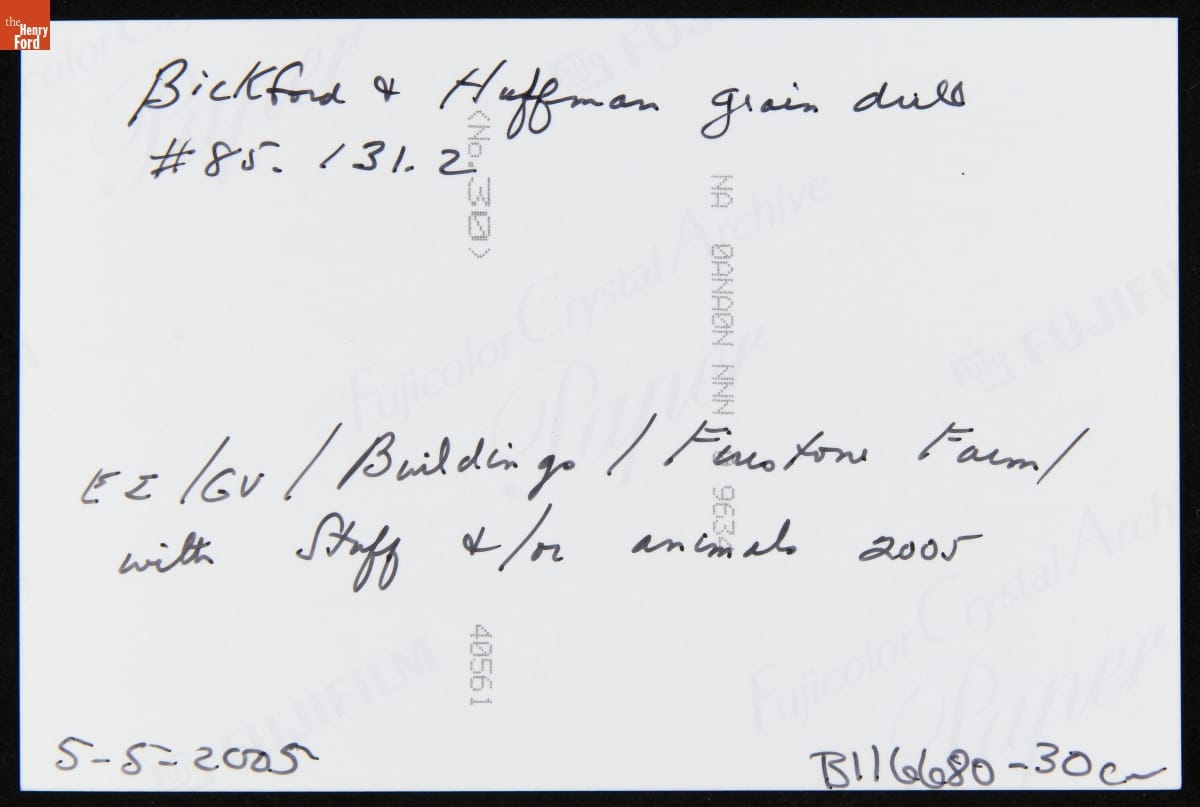 the
Henry
Ford
Bickford & Huffman grain drill
#85.131.2
<No.30>
NA 0ANA0N NNN
9634
EI/GV/Buildings/Firestone Farm/
with Staff &/or animals 2005
40561
5-5-2005
B116680-30
Fujicolor Crystal Archive
Paper
FUJIFILM